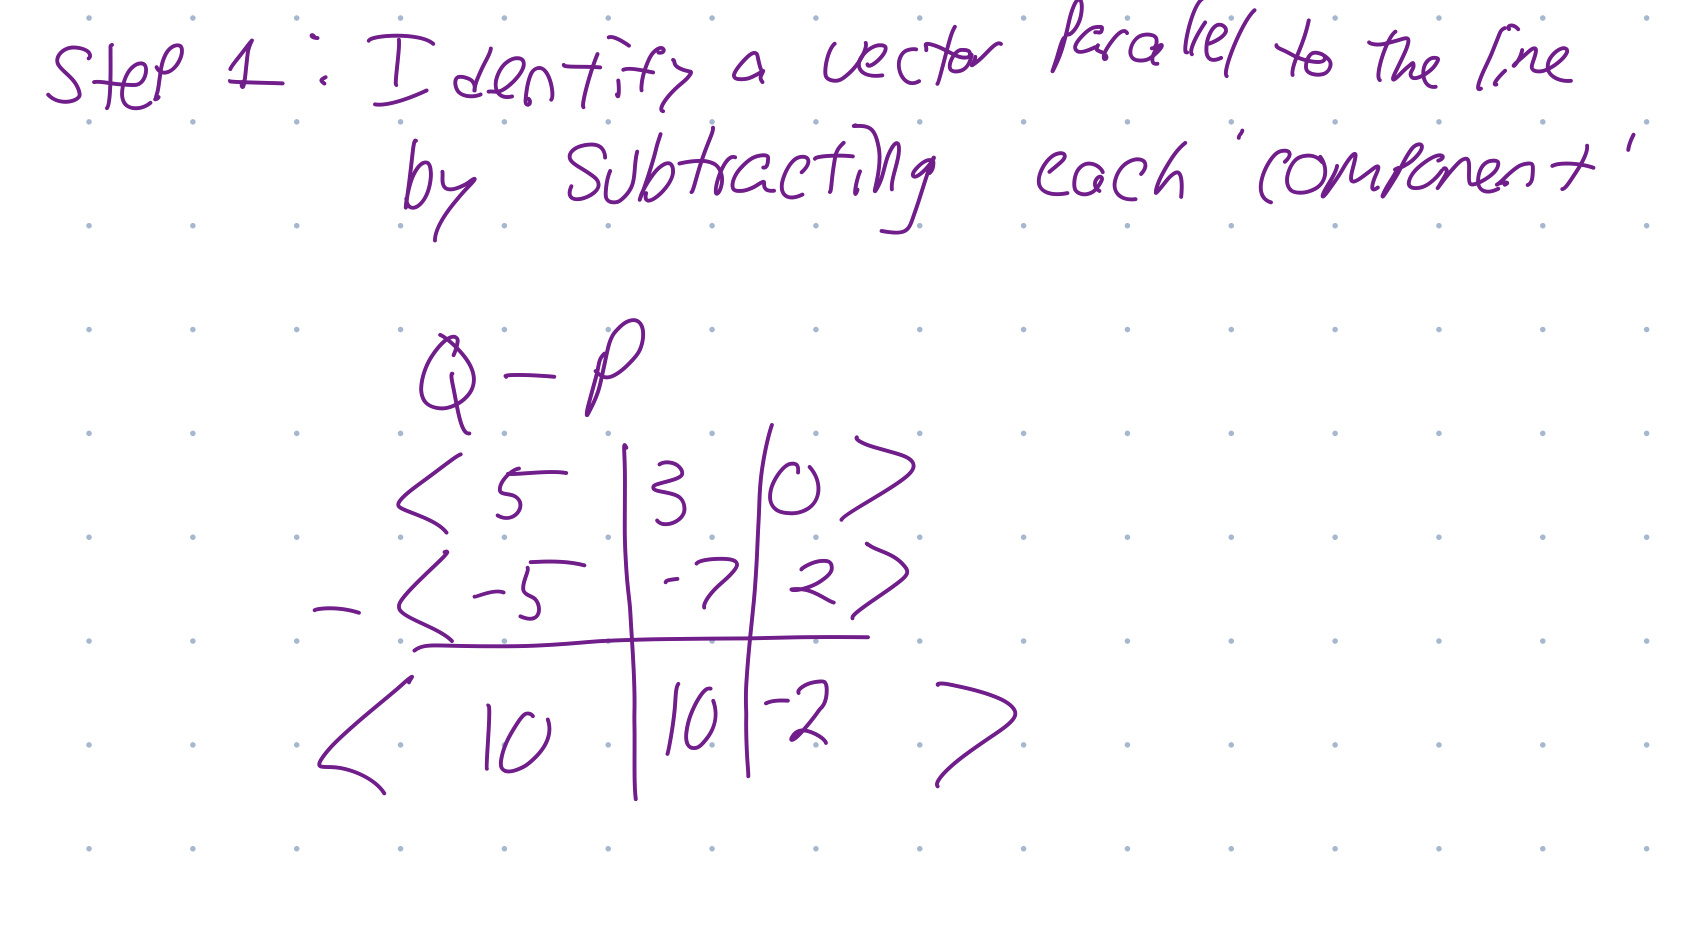 Step 1: Identify a vector parallel to the line
by subtracting each 'component'
Q - P
< 5 | 3 | 0 >
- < -5 | -7 | 2 >
< 10 | 10 | -2 >